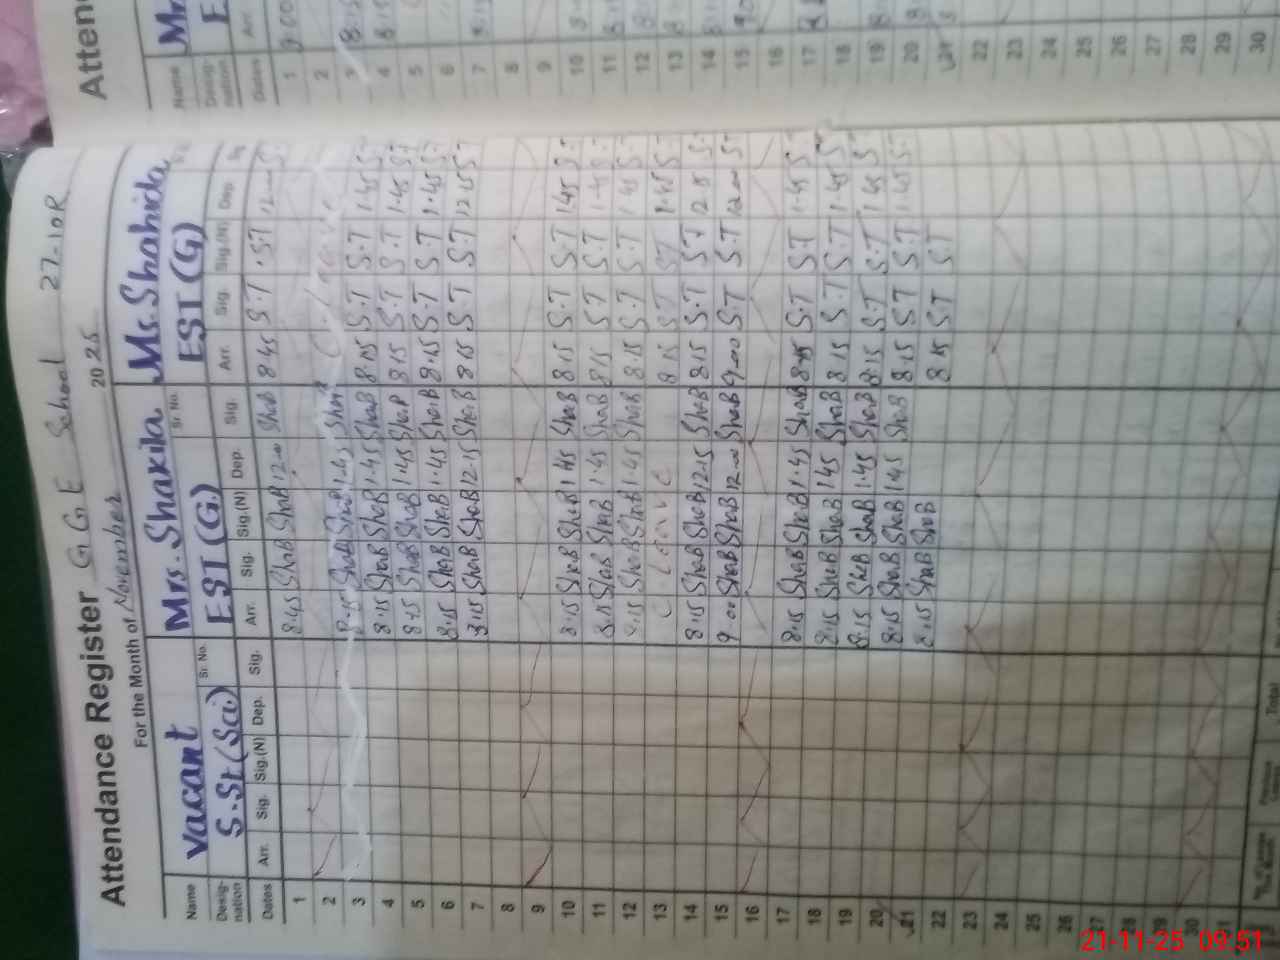 Attendance Register G G E School 27-10R
For the Month of November 2025
Name Vacant Sr. No. Mrs. Shakila Sr. No. Ms. Shahida
Designation S.St (Sci) EST (G) EST (G)
Dates Arr. Sig. Sig.(N) Dep. Sig. Arr. Sig. Sig.(N) Dep. Sig. Arr. Sig. Sig.(N) Dep. Sig.
1 8.45 ShaB ShaB 12.00 ShaB 8.45 S.T S.T 12.00 S.T
2
3 8.15 ShaB ShaB 1.45 ShaB
4 8.15 ShaB ShaB 1.45 ShaB 8.15 S.T S.T 1.45 S.T
5 8.15 ShaB ShaB 1.45 ShaB 8.15 S.T S.T 1.45 S.T
6 8.15 ShaB ShaB 1.45 ShaB 8.15 S.T S.T 1.45 S.T
7 8.15 ShaB ShaB 12.15 ShaB 8.15 S.T S.T 12.15 S.T
8
9
10 8.15 ShaB ShaB 1.45 ShaB 8.15 S.T S.T 1.45 S.T
11 8.15 ShaB ShaB 1.45 ShaB 8.15 S.T S.T 1.45 S.T
12 8.15 ShaB ShaB 1.45 ShaB 8.15 S.T S.T 1.45 S.T
13 C Leave 8.15 S.T S.T 1.45 S.T
14 8.15 ShaB ShaB 12.15 ShaB 8.15 S.T S.T 12.15 S.T
15 9.00 ShaB ShaB 12.00 ShaB 9.00 S.T S.T 12.00 S.T
16
17 8.15 ShaB ShaB 1.45 ShaB 8.15 S.T S.T 1.45 S.T
18 8.15 ShaB ShaB 1.45 ShaB 8.15 S.T S.T 1.45 S.T
19 8.15 ShaB ShaB 1.45 ShaB 8.15 S.T S.T 1.45 S.T
20 8.15 ShaB ShaB 1.45 ShaB 8.15 S.T S.T 1.45 S.T
21 8.15 ShaB ShaB 8.15 S.T S.T
22
23
24
25
26
27
28
29
30
31
Total
Atten
Name Mr
Designation E
Dates Arr
1 9.00
2
3 8.15
4 8.15
5
6
7
8
9
10
11
12
13
14
15
16
17
18
19
20
21
22
23
24
25
26
27
28
29
30
21-11-25 09:51